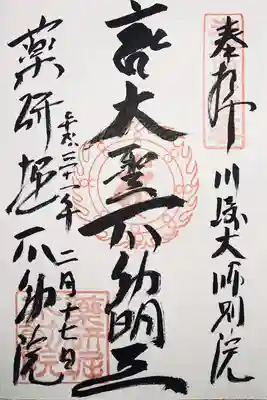 奉拝
川崎大師別院
大聖不動明王
平成三十一年
二月十七日
薬研堀不動院